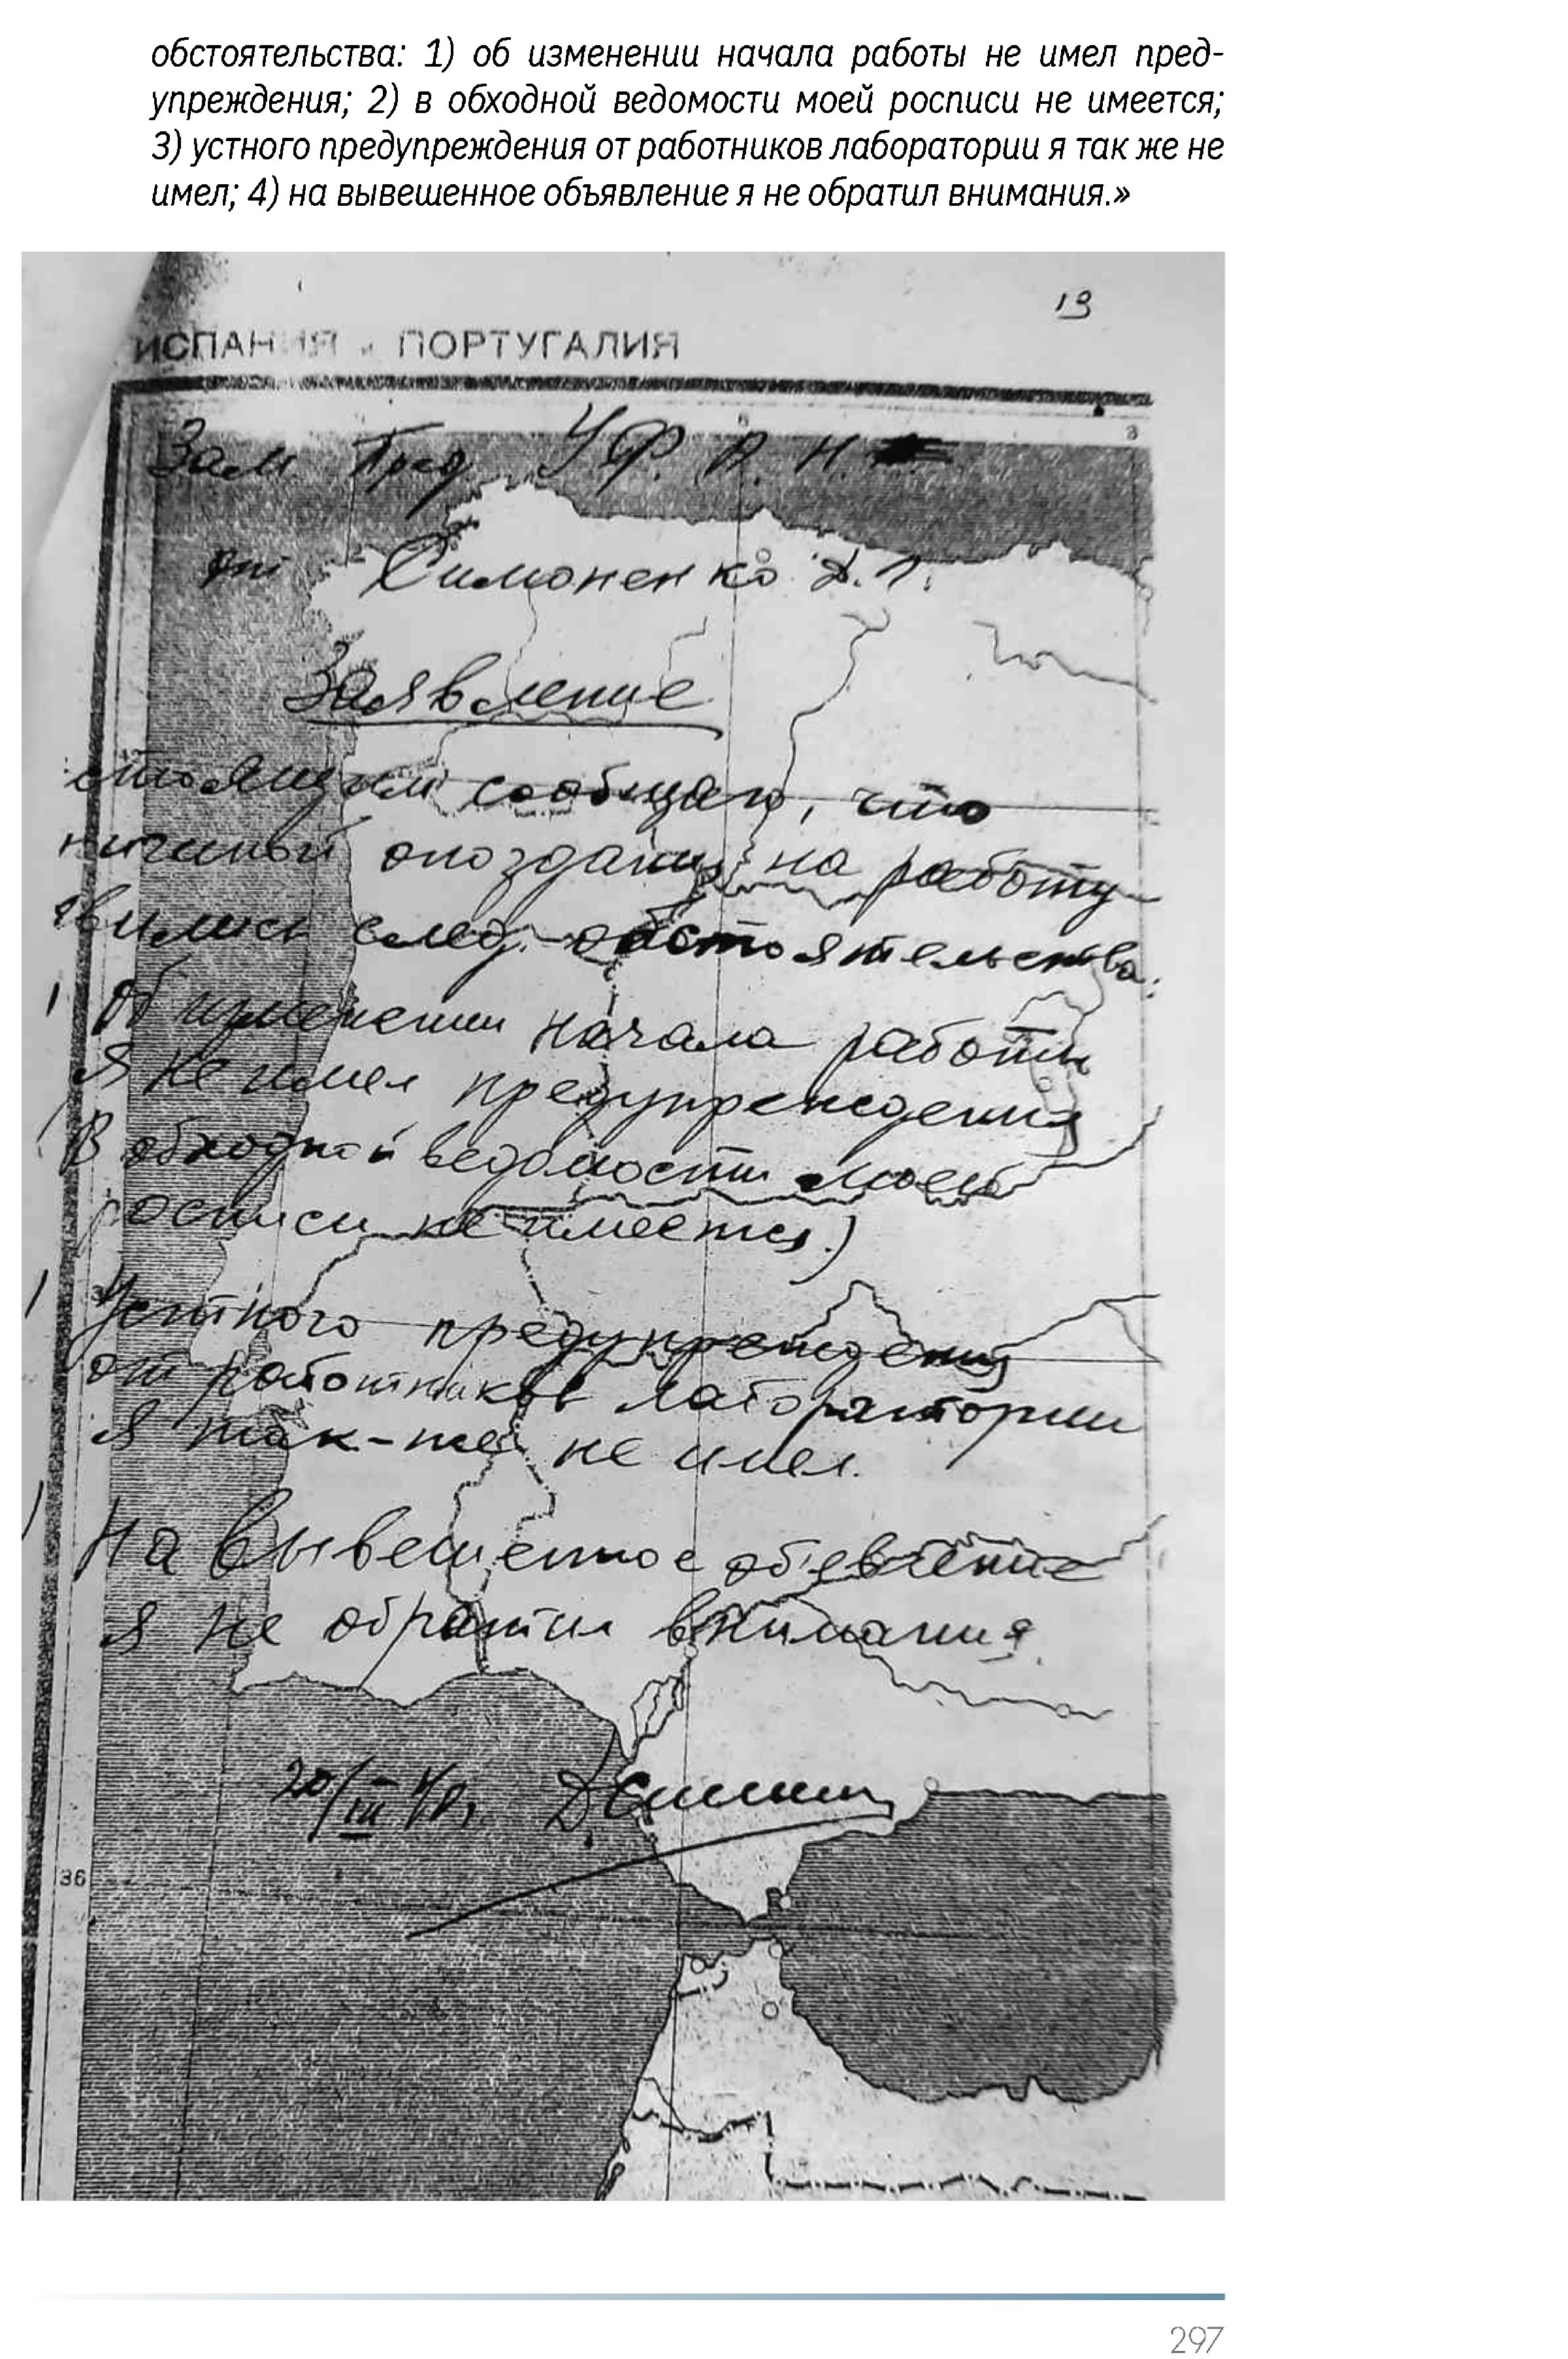 обстоятельства: 1) об изменении начала работы не имел пред-
упреждения; 2) в обходной ведомости моей росписи не имеется;
3) устного предупреждения от работников лаборатории я так же не
имел; 4) на вывешенное объявление я не обратил внимания.»
19
ИСПАНИЯ и ПОРТУГАЛИЯ
8
Зам. Пред УФ. А. Н.
от Симоненко Д. Л.
Заявление
стоящим сообщаю, что
ричиной опоздания на работу
явились след. обстоятельства:
Об изменении начала работы
я не имел предупреждения
(В обходной ведомости моей
росписи не имеется.)
Устного предупреждения
от работников лаборатории
я так-же не имел.
На вывешенное объевление
я не обратил внимания.
20/III 41г.
36
297